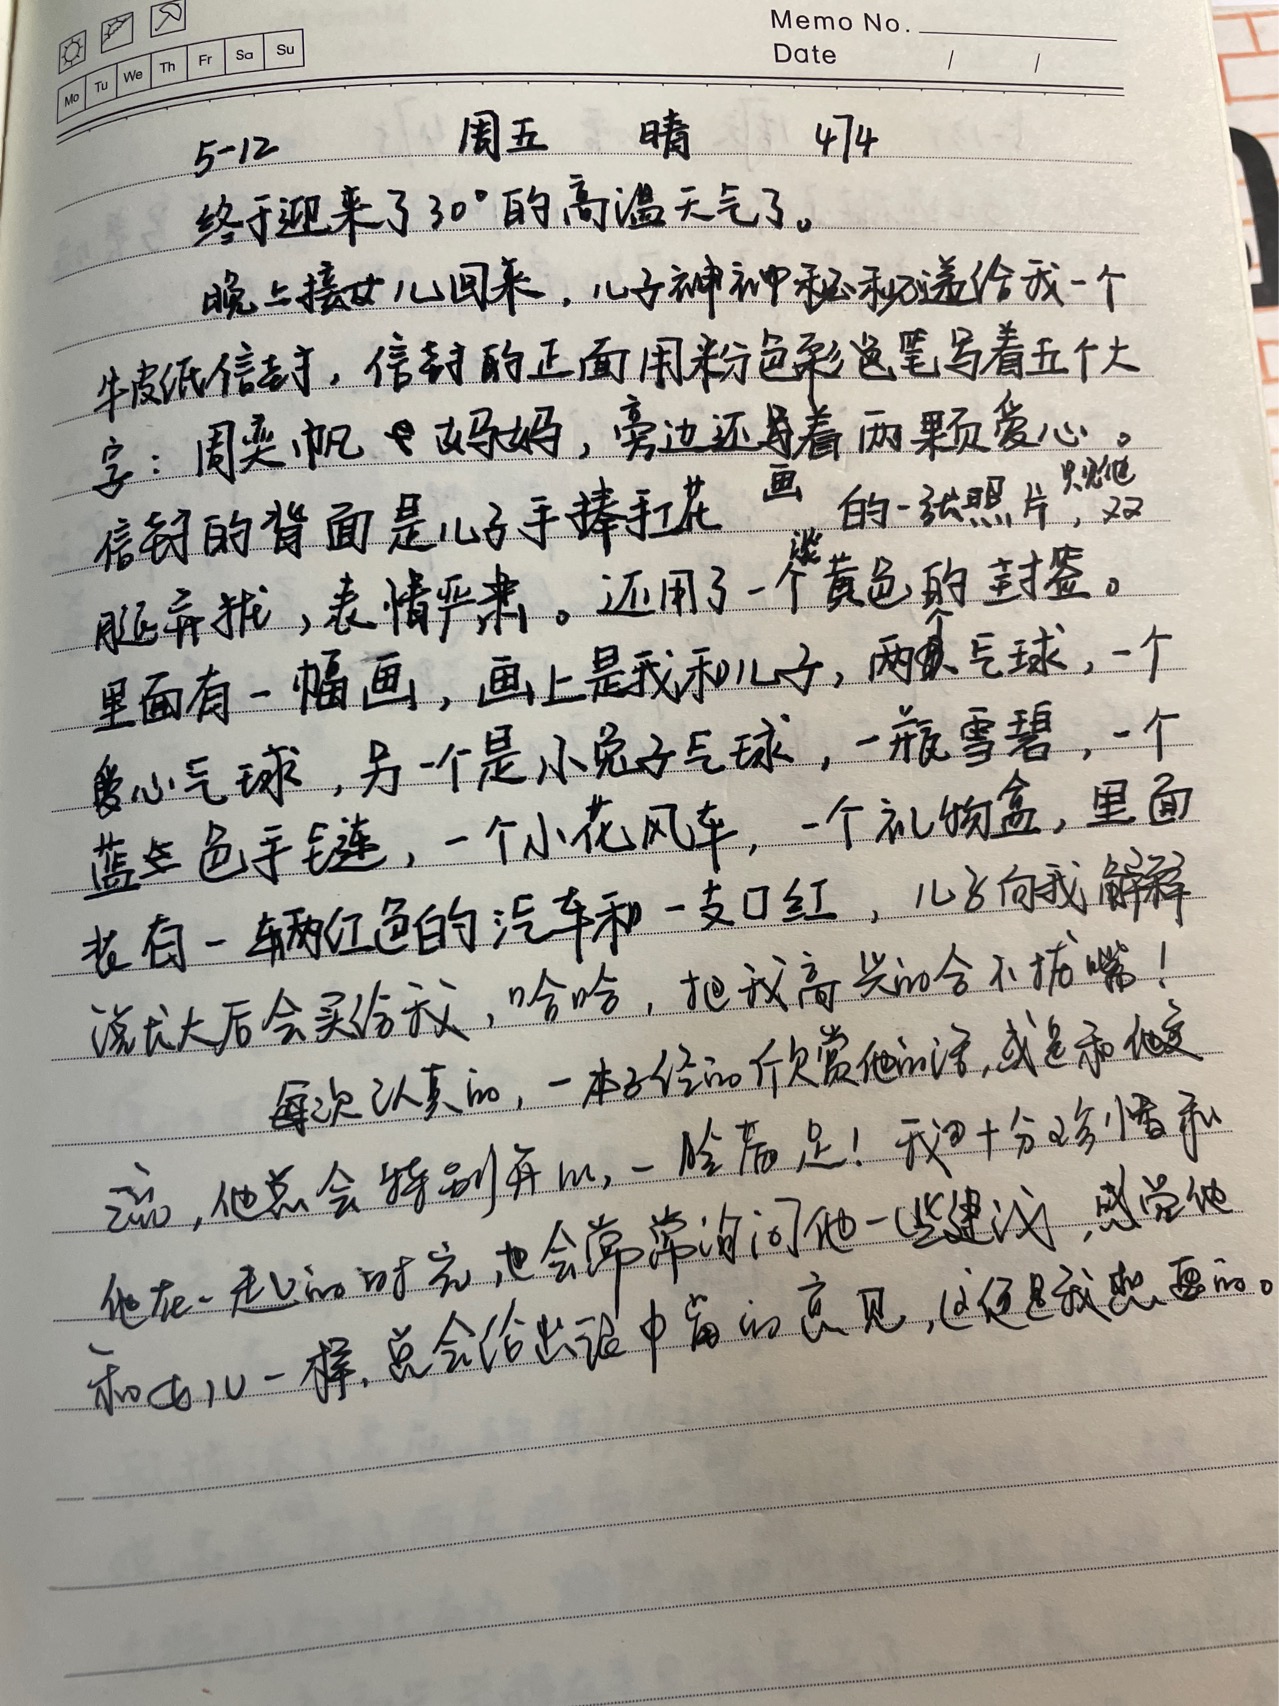 Memo No.
Mo Tu We Th Fr Sa Su
Date / /
5-12 周五 晴 474
终于迎来了30°的高温天气了。
晚上接女儿回来，儿子神神秘秘递给我一个
牛皮纸信封，信封的正面用粉色彩色笔写着五个大
字：周奕帆 妈妈，旁边还画着两颗爱心。
信封的背面是儿子手捧手工花的一张照片，只见他双
腿弃拢，表情严肃。还用了一个淡黄色的封签。
里面有一幅画，画上是我和儿子，两个气球，一个
爱心气球，另一个是小兔子气球，一瓶雪碧，一个
蓝色手链，一个小花风车，一个礼物盒，里面
装有一辆红色的汽车和一支口红，儿子向我解释
说长大后会买给我，哈哈，把我高兴的合不拢嘴！
每次认真的，一本子经的欣赏他的活，或是和他交
流，他总会特别开心，一脸满足！我十分珍惜和
他在一起的时光，也会常常询问他一些建议，感觉他
和女儿一样，总会给出适中肯的意见，这便是我想要的。